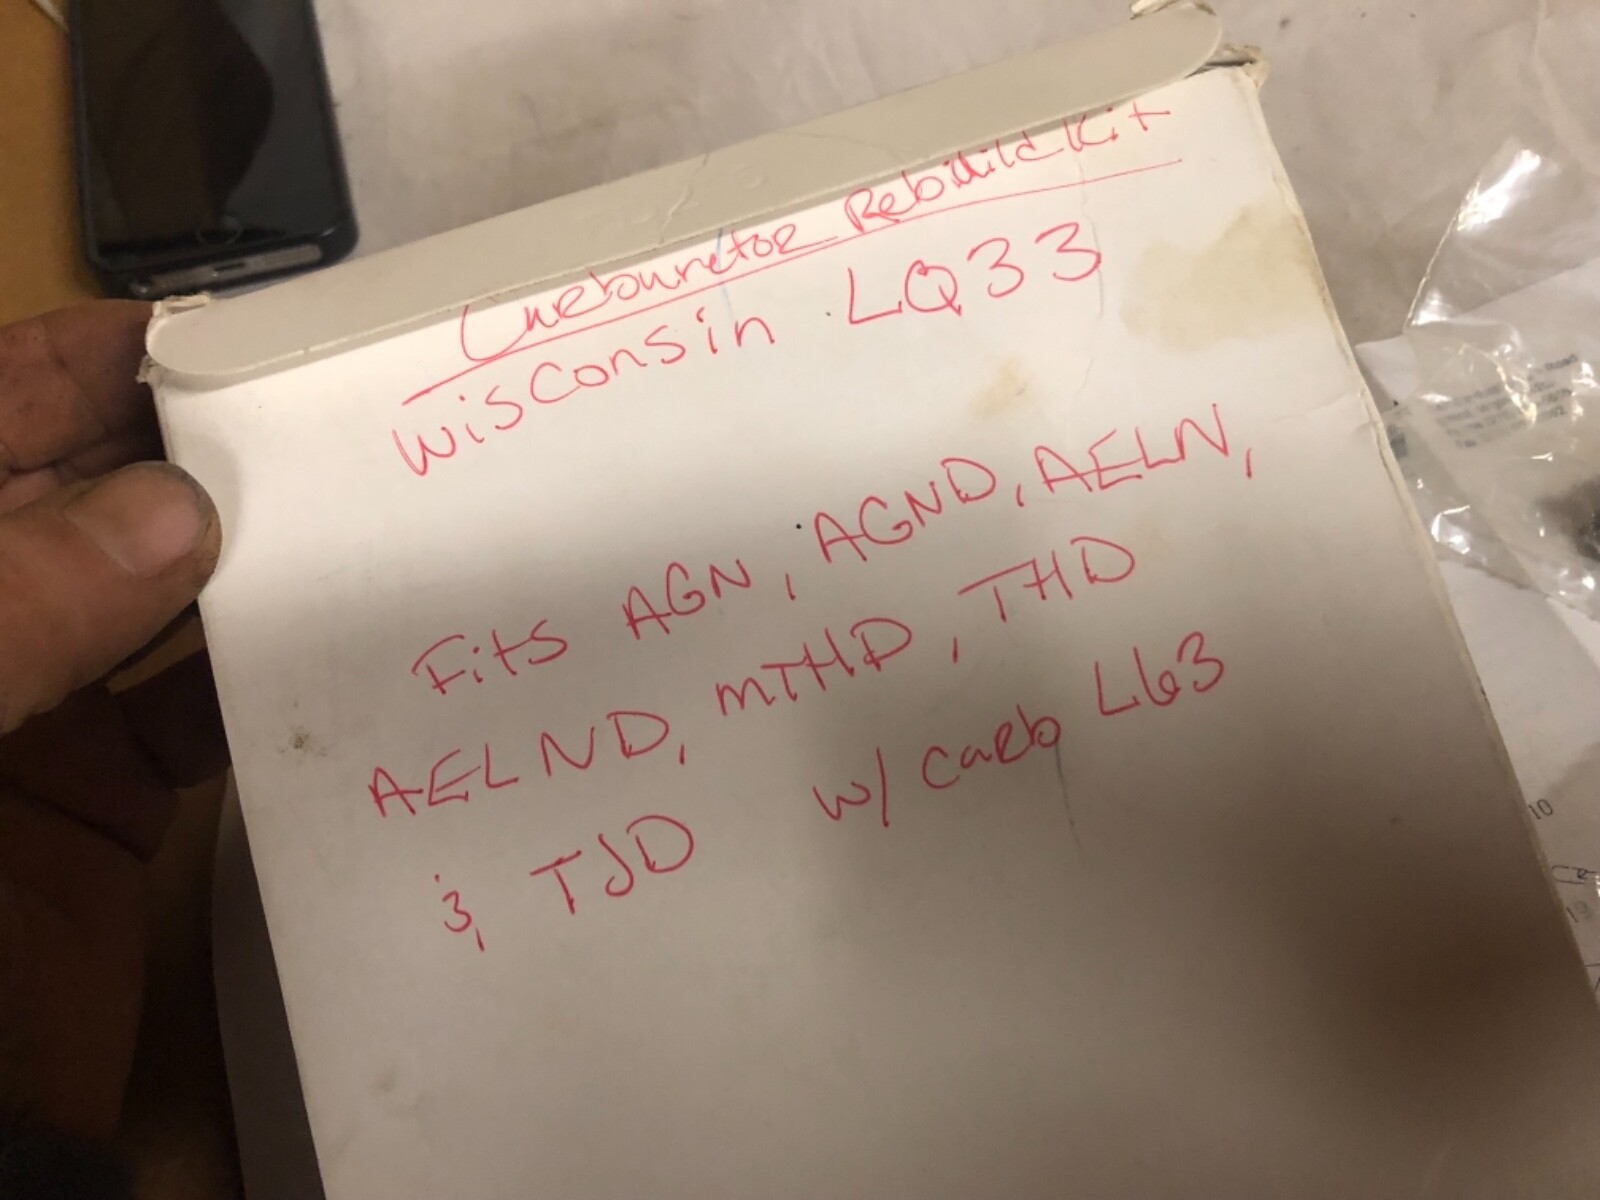 Carburetor Rebuild Kit
Wisconsin LQ33
Fits AGN, AGND, AELN,
AELND, MTHD, THD
& TJD w/ carb L63
10
19